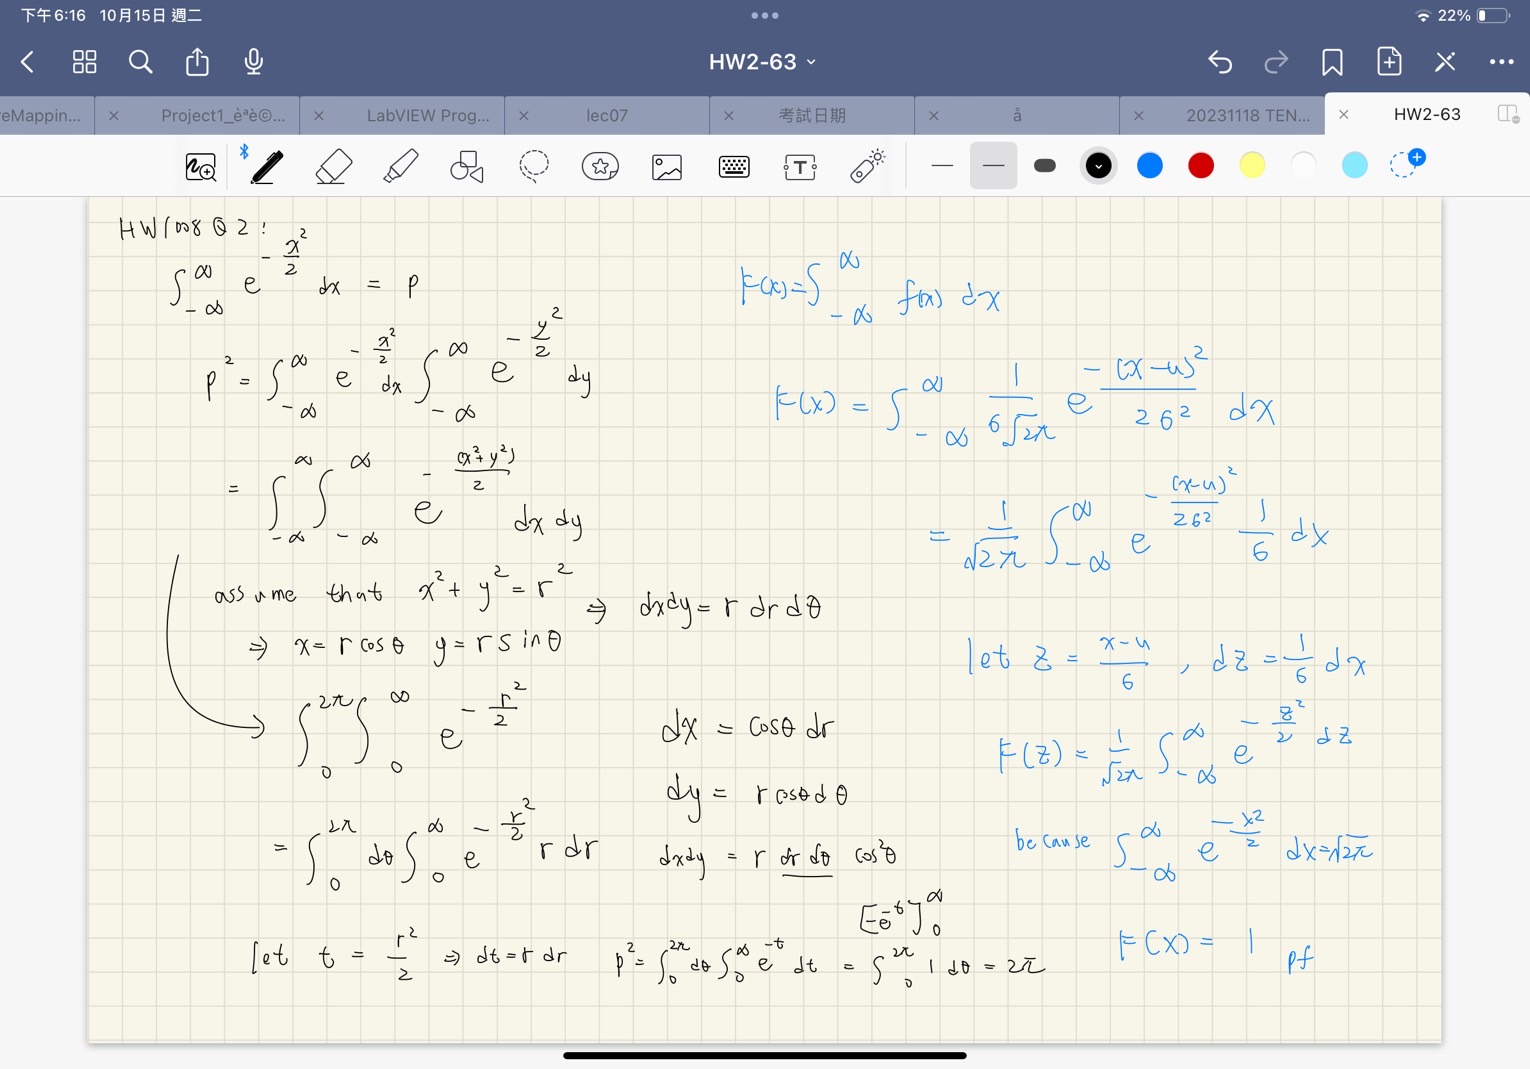 下午6:16 10月15日 週二
22%
HW2-63
reMappin...
Project1_èªè©...
LabVIEW Prog...
lec07
考試日期
å
20231118 TEN...
HW2-63
HW1008 Q2:
∫_{-∞}^{∞} e^{-x²/2} dx = p
p² = ∫_{-∞}^{∞} e^{-x²/2} dx ∫_{-∞}^{∞} e^{-y²/2} dy
= ∫_{-∞}^{∞} ∫_{-∞}^{∞} e^{-(x²+y²)/2} dx dy
assume that x² + y² = r² ⇒ dxdy = r dr dθ
⇒ x = r cosθ y = r sinθ
∫_0^{2π} ∫_0^{∞} e^{-r²/2}
= ∫_0^{2π} dθ ∫_0^{∞} e^{-r²/2} r dr
dx = cosθ dr
dy = r cosθ dθ
dxdy = r dr dθ cos²θ
let t = r²/2 ⇒ dt = r dr
[-e^{-t}]_0^{∞}
p² = ∫_0^{2π} dθ ∫_0^{∞} e^{-t} dt = ∫_0^{2π} 1 dθ = 2π
F(x) = ∫_{-∞}^{∞} f(x) dx
F(x) = ∫_{-∞}^{∞} 1/(6√2π) e^{-(x-u)²/26²} dx
= 1/√2π ∫_{-∞}^{∞} e^{-(x-u)²/26²} 1/6 dx
let z = (x-u)/6 , dz = 1/6 dx
F(z) = 1/√2π ∫_{-∞}^{∞} e^{-z²/2} dz
because ∫_{-∞}^{∞} e^{-x²/2} dx = √2π
F(x) = 1 pf